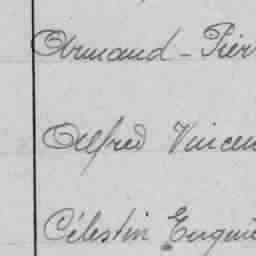 Armand-Pier
Alfred Vincen
Célestin Eugè